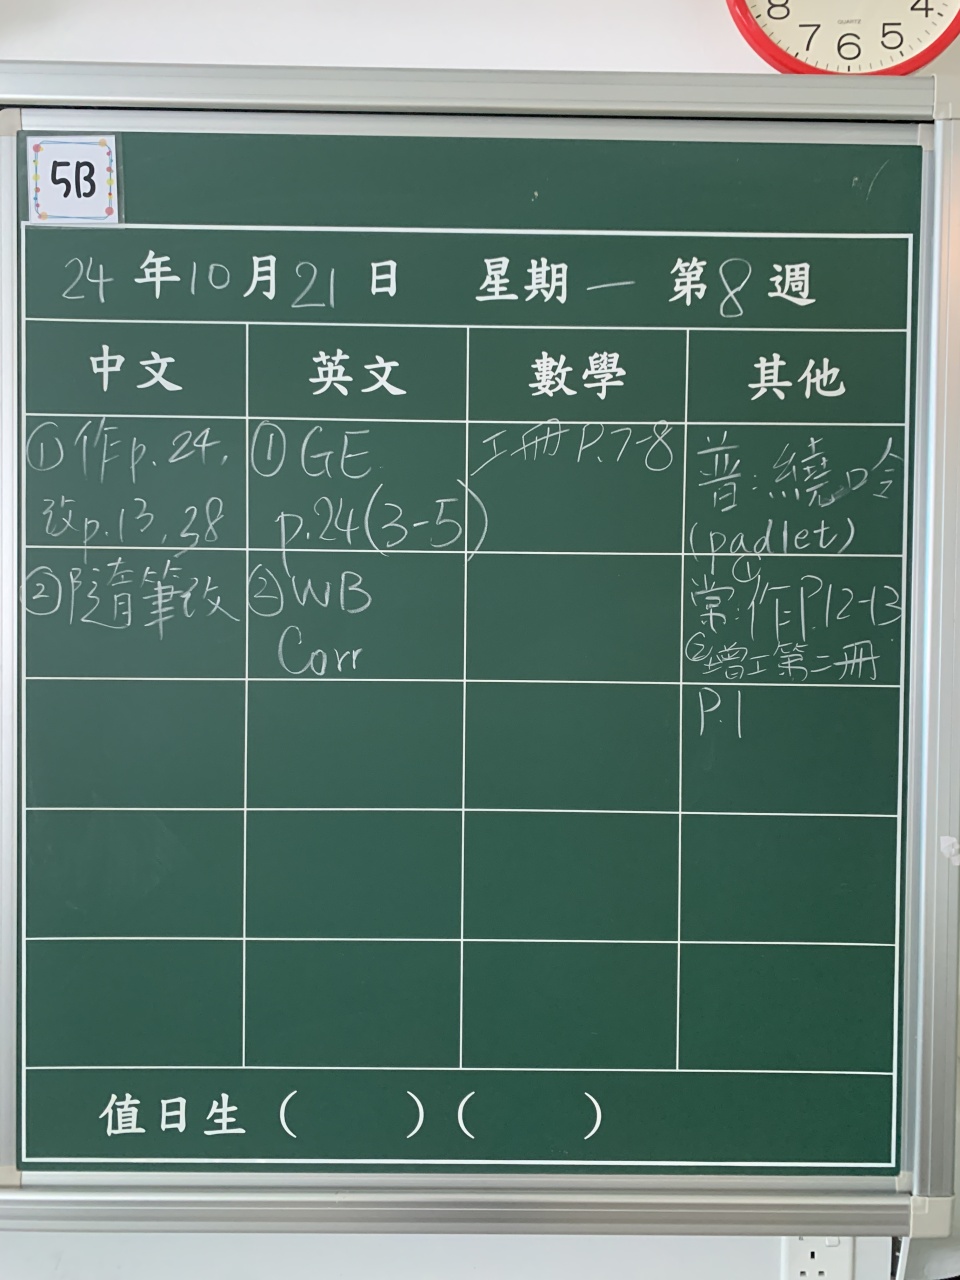 8 7 6 5 4
QUARTZ
5B
24年10月21日 星期一 第8週
中文 英文 數學 其他
①作p.24,
改p.13,38
②隨筆改
①GE
p.24(3-5)
②WB
Corr
工冊P.7-8
普:繞口令
(padlet)
常:①作P.12-13
②增工第二冊
P.1
值日生( )( )